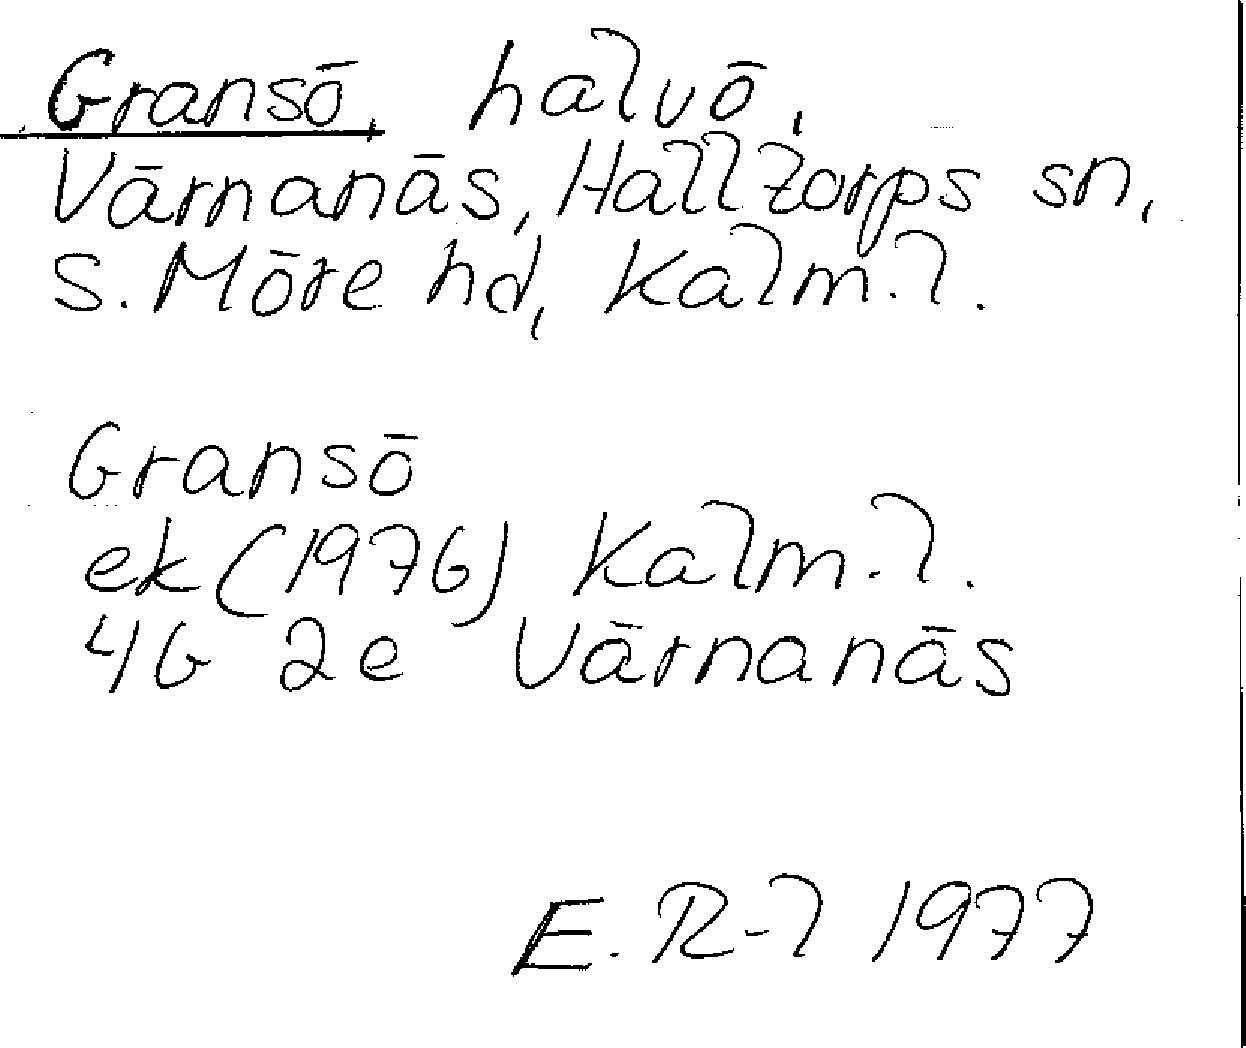 Gransö, halvö,
Värnanäs, Halltorps sn,
S. Möre hd, Kalm. l.
Gransö
ek (1976) Kalm. l.
4G 2e Värnanäs
E. R-l 1977